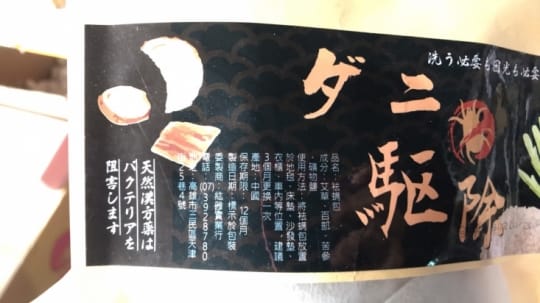 洗う必要も日光も必要
ダニ
駆除
品名：祛螨包
成分：艾草、百部、苦參
、磺胺鹽
使用方法：將祛螨包放置
於地毯、床墊、沙發墊、
衣櫃、車內等位置，建議
3個月更換一次
產地：中國
保存期限：12個月
製造日期：標示於包裝
委製商：
電話：(07)3928780
地址：高雄市三民區天津
街23巷4號
天然漢方薬は
バクテリアを
阻害します